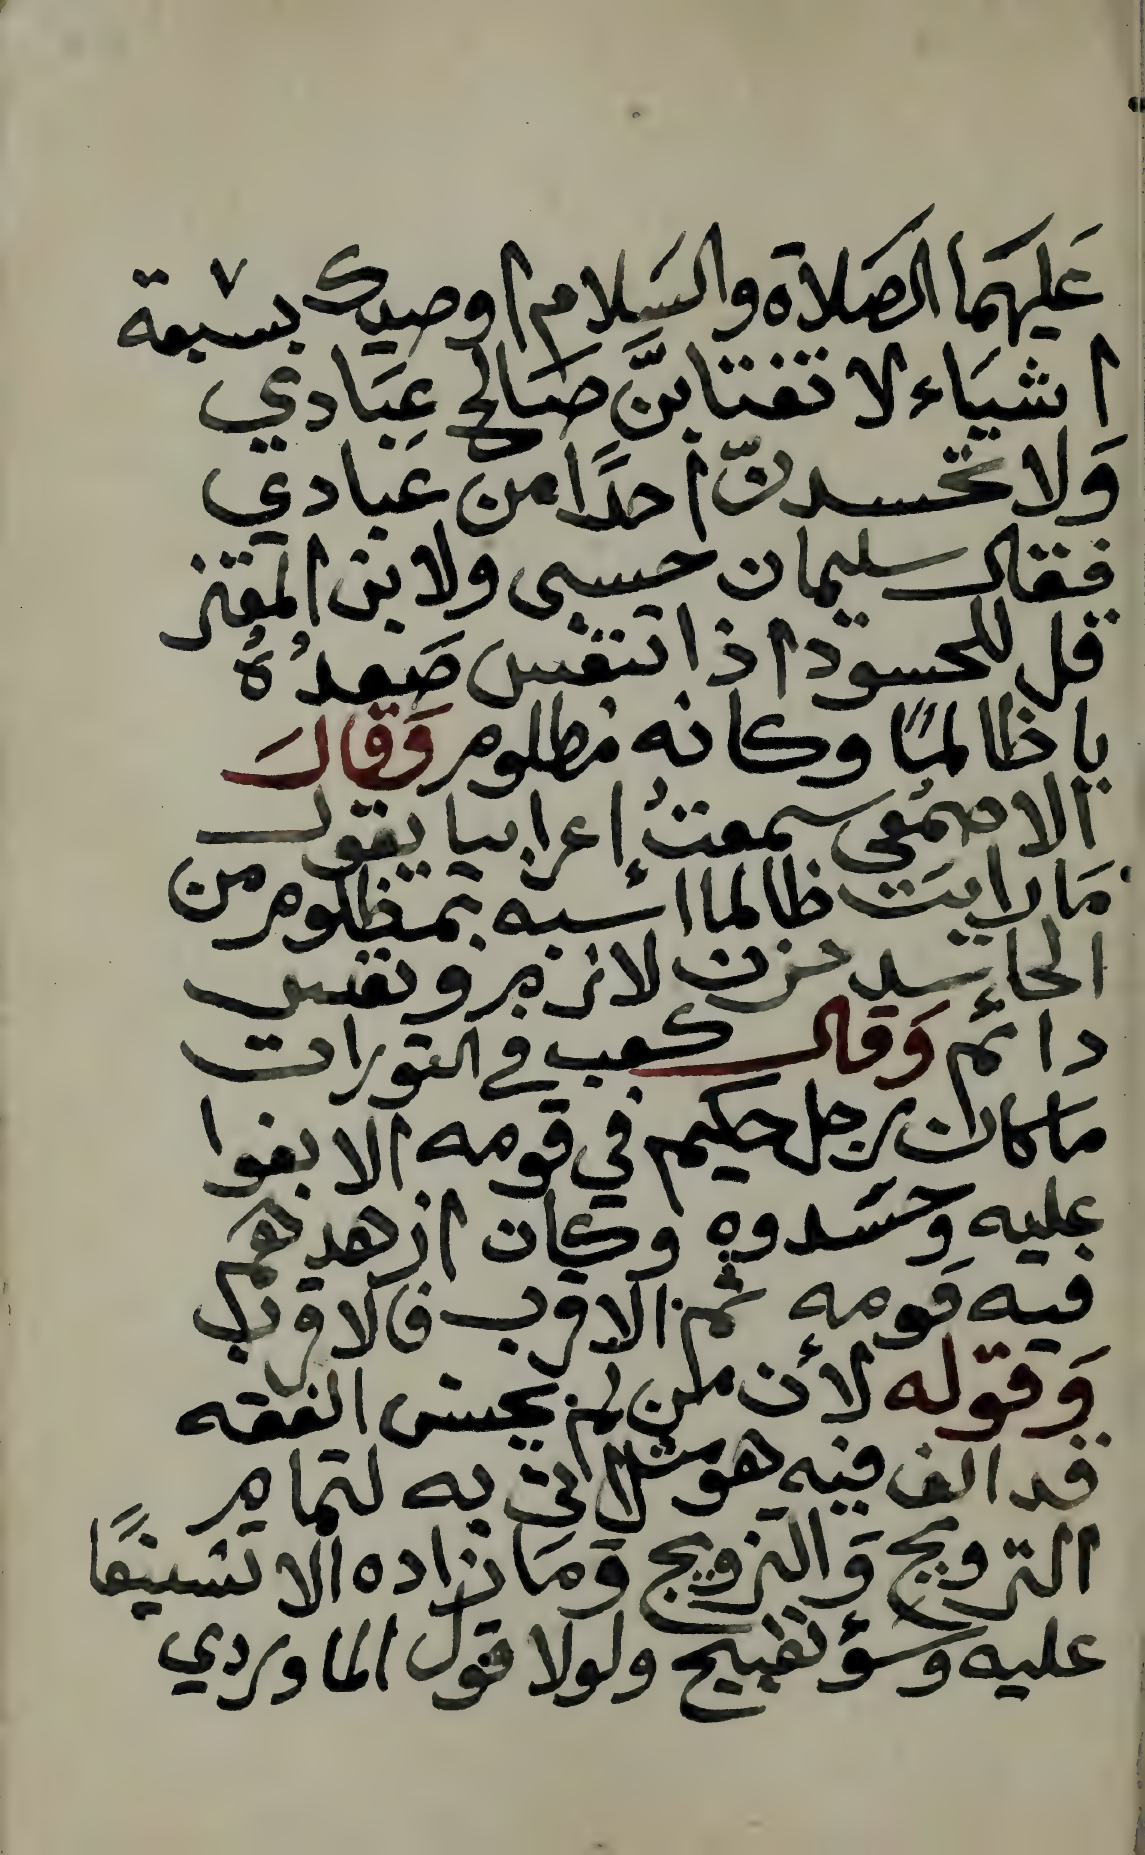 عَليهَما الصَلاة والسَلام أوصيك بسبعة
اشيَاء لا تغتابنَّ صَالح عِبَادي
وَلا تحسدنّ أحدًا من عَبادي
فقال سليمان حسبى ولابن المعتز
قل للحسود اذا تنفس صَعدُهُ
يا ظالمًا وكانه مظلوم وَقالَ
الاصمُعي سمعتُ إعرابيا يقول
مَا رايتَ ظالما اشبه بمظلوم من
الحاسد حزن لازم ونفس
دائم وَقال كعب في التورات
ما كان رجل حكيم في قومه الا بغوا
عليه وحسَدوه وكان ازهدهم
فيه قَومه ثم الاقرب فالاقرب
وَقوله لأن من لم يحسن الفقه
قد الف فيه هو مثل اتى به لتمام
الترويج وَالتزويج وَمَا زاده الا تشنيعًا
عليه وَسؤ تقبيح ولولا قول الماوردي